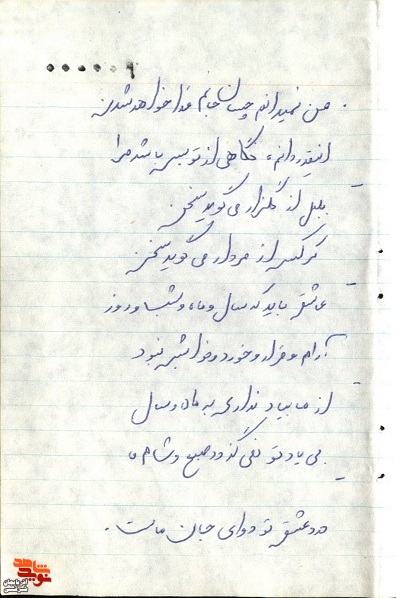 من نمیدانم چسان جانم فدا خواهد شدن
اینقدر دانم، نگاهی از تو بس باشد مرا
بلبل از گلزار می گوید سخن
کرکس از مردار می گوید سخن
عاشق باید که سال و ماه و شب و روز
آرام و قرار و خورد و خوابش نبود
از ما بیاد نداری به ماه و سال
بی یاد تو نمی گذرد صبح و شام ما
درد عشق تو دوای جان ماست.
شاهد
نوید